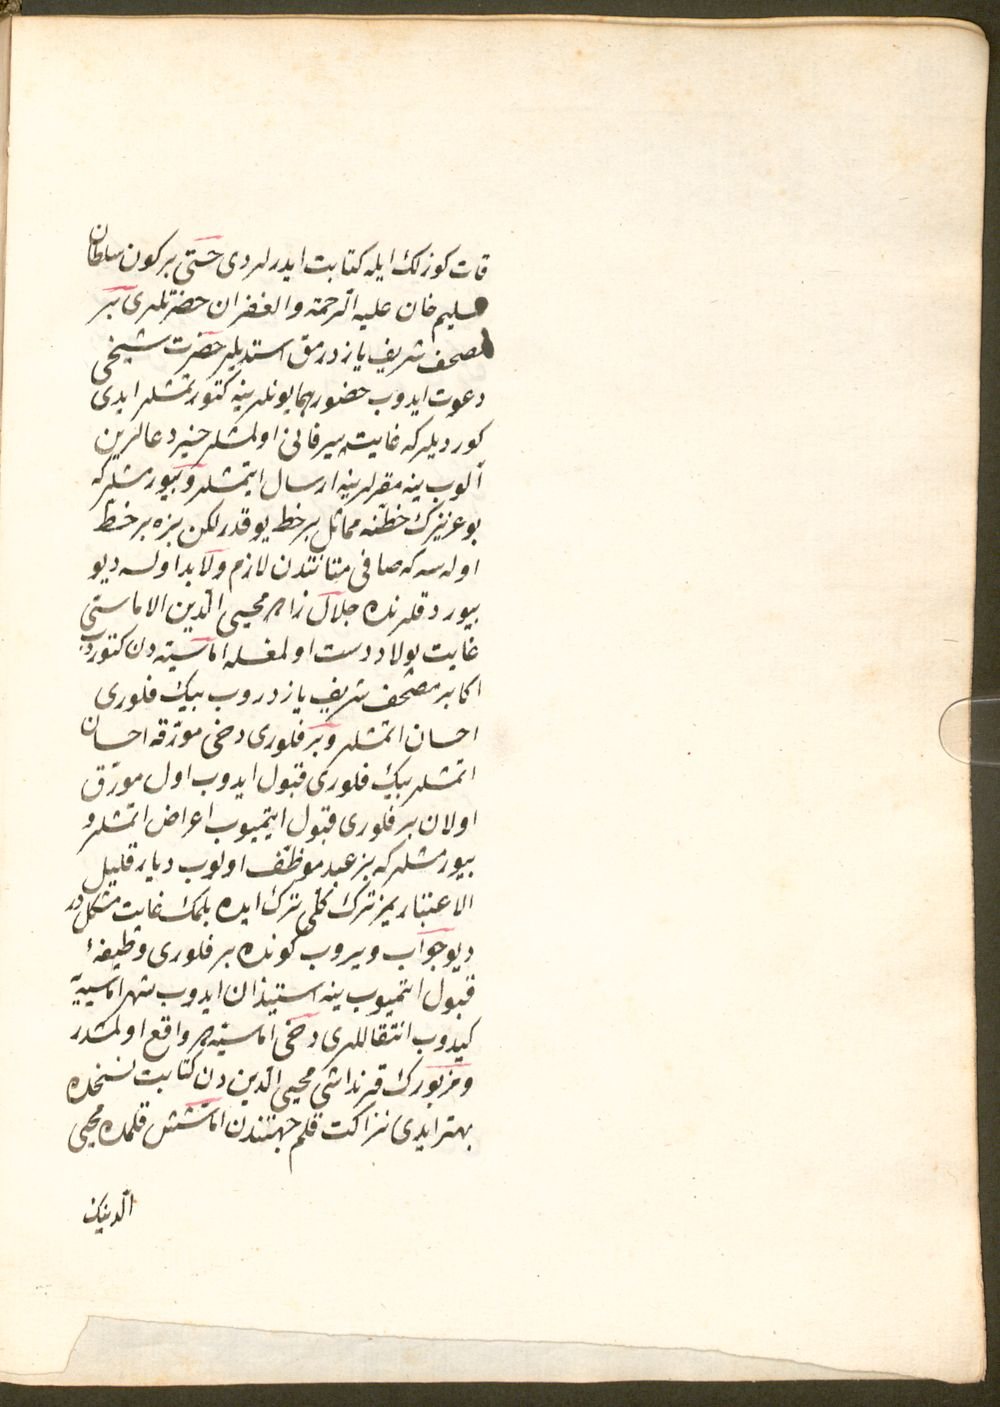 قات كوزلك ايله كتابت ايدرلردى حتى بر كون سلطان
سليم خان عليه الرحمة والغفران حضرتلرى بر
مصحف شريف يازدرمق استديلر حضرت شيخى
دعوت ايدوب حضور همايونلرينه كتورتمشلر ايدى
كورديلر كه غايت پير فانى اولمشلر خير دعالرين
آلوب ينه مقرلرينه ارسال ايتمشلر و بيورمشلر كه
بو عزيزك خطنه مماثل بر خط يوقدر لكن بزه بر خط
اوله سه كه صافى متانتدن لازم ولابد اولسه ديو
بيوردقلرنده جلال زاده محيى الدين الاماسى
غايت پولاد دست اولمغله اماسيه دن كتوردوب
اكابر مصحف شريف يازدروب بيك فلورى
احسان اتمشلر و بر فلورى دخى مورقه احسان
اتمشلر بيك فلورى قبول ايدوب اول مورق
اولان بر فلورى قبول ايتميوب اعراض اتمشلر و
بيورمشلر كه بز عبد موظف اولوب ديار قليل
الاعتباريمز ترك كلى ترك ايده بلمك غايت مشكلدر
ديو جواب ويروب كونده بر فلورى وظيفۀ
قبول اتميوب ينه استيذان ايدوب شهر اماسيه يه
كيدوب انتقاللرى دخى اماسيه ده واقع اولمشدر
و مزبورك قرنداشى محيى الدين دن كتابت نسخده
بهتر ايدى نزاكت قلم جهتندن اما شش قلمده محيى
الدينك